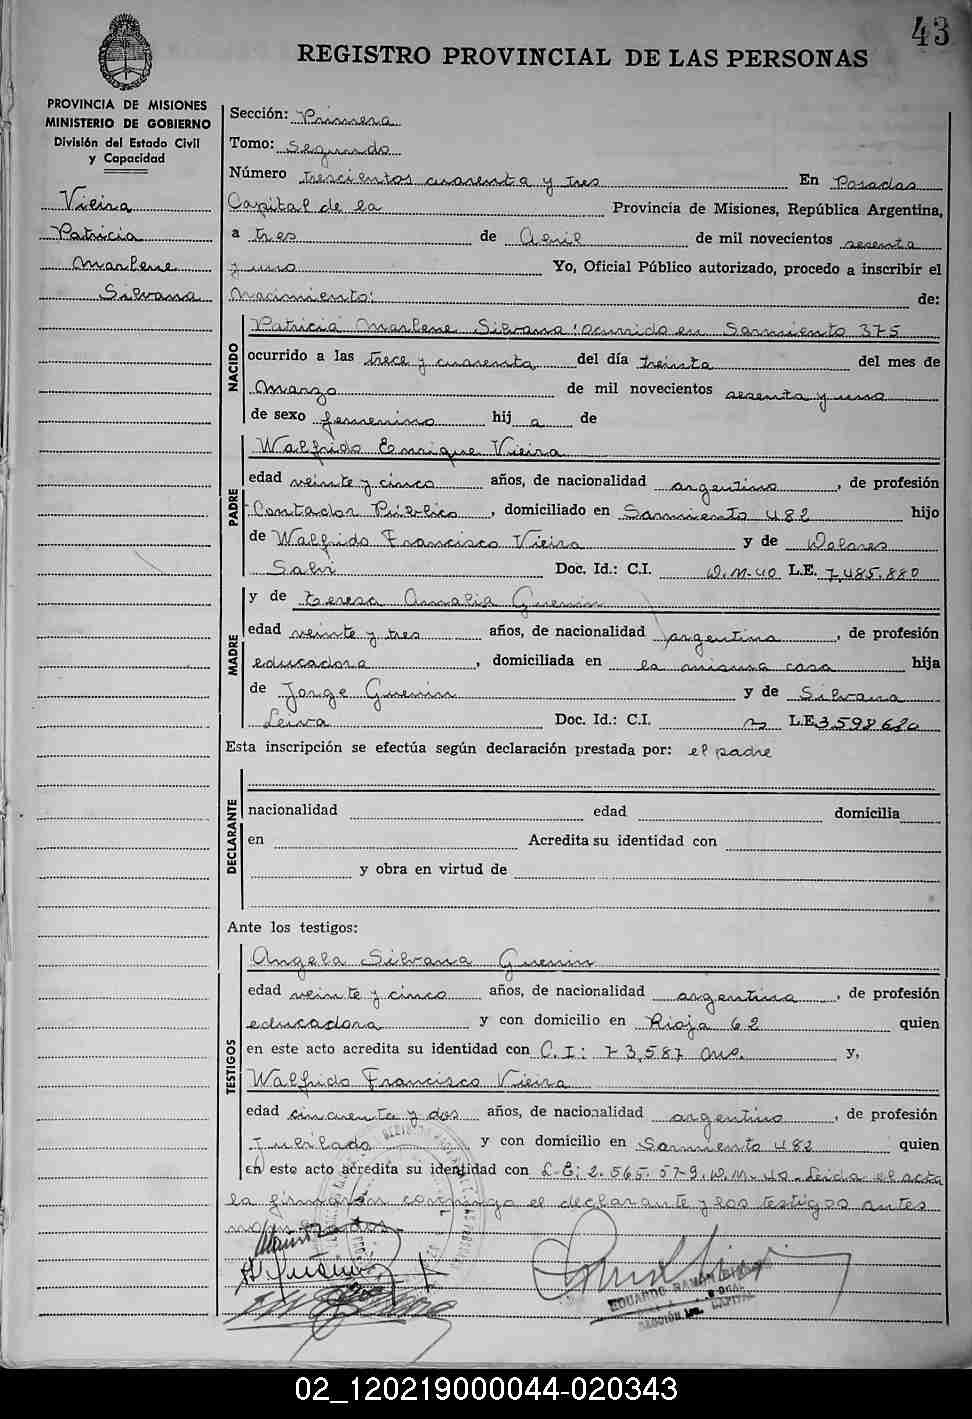 43
REGISTRO PROVINCIAL DE LAS PERSONAS
PROVINCIA DE MISIONES
MINISTERIO DE GOBIERNO
División del Estado Civil
y Capacidad
Vieira
Patricia
Marlene
Silvana
Sección: Primera
Tomo: Segundo
Número trescientos cuarenta y tres En Posadas
Capital de la Provincia de Misiones, República Argentina,
a tres de Abril de mil novecientos sesenta
y uno Yo, Oficial Público autorizado, procedo a inscribir el
Nacimiento: de:
NACIDO
Patricia Marlene Silvana: ocurrido en Sarmiento 375
ocurrido a las trece y cuarenta del día treinta del mes de
Marzo de mil novecientos sesenta y uno
de sexo femenino hij a de
PADRE
Walfrido Enrique Vieira
edad veinte y cinco años, de nacionalidad argentino, de profesión
Contador Público, domiciliado en Sarmiento 482 hijo
de Walfrido Francisco Vieira y de Dolores
Salvi Doc. Id.: C.I. D.M. 40 L.E. 7.485.880
MADRE
y de Teresa Amalia Guerin
edad veinte y tres años, de nacionalidad argentina, de profesión
educadora, domiciliada en la misma casa hija
de Jorge Guerin y de Silvana
Leiva Doc. Id.: C.I. L.E. 3598680
Esta inscripción se efectúa según declaración prestada por: el padre
DECLARANTE
nacionalidad edad domicilia
en Acredita su identidad con
y obra en virtud de
Ante los testigos:
TESTIGOS
Angela Silvana Guerin
edad veinte y cinco años, de nacionalidad argentina, de profesión
educadora y con domicilio en Rioja 62 quien
en este acto acredita su identidad con C.I: 73.587 y,
Walfrido Francisco Vieira
edad cincuenta y dos años, de nacionalidad argentino, de profesión
Jubilado y con domicilio en Sarmiento 482 quien
en este acto acredita su identidad con L.E: 2.565.579. D.M. 40. Leida el acta
la firmaron conmigo el declarante y los testigos antes
EDUARDO RAMON
SECCIÓN 1ra. CAPITAL
02_120219000044-020343